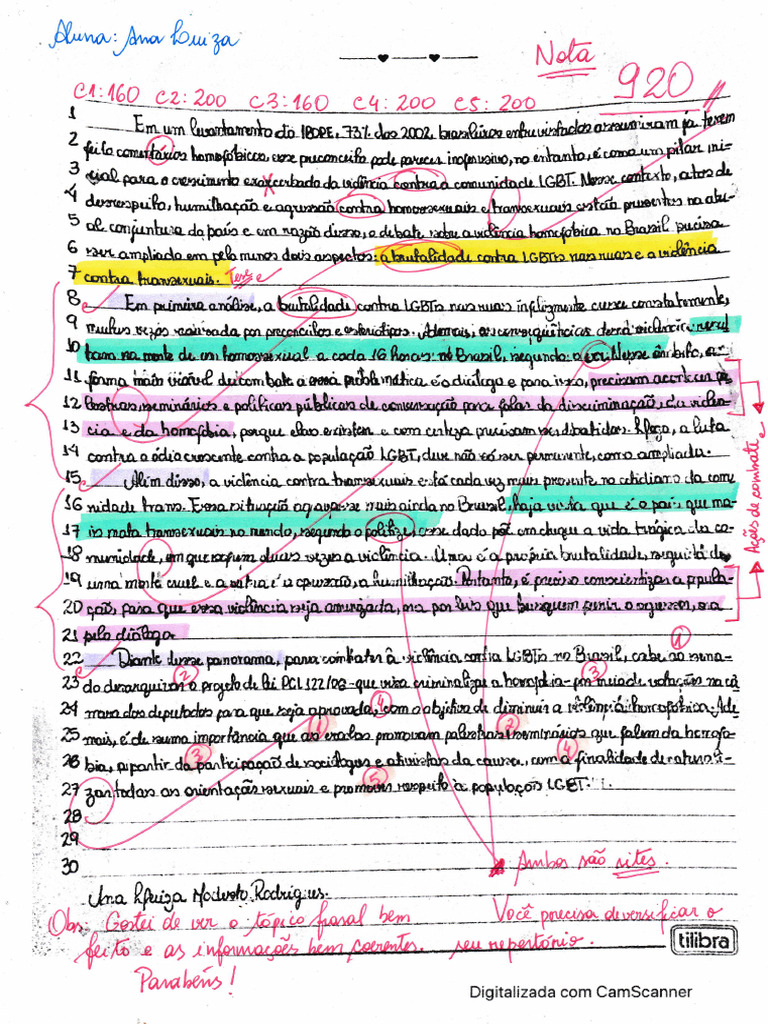 Aluna: Ana Luiza
Nota
920
C1:160 C2:200 C3:160 C4:200 C5:200
1 Em um levantamento do IBOPE, 73% dos 2002 brasileiros entrevistados assumiram já terem
2 feito comentários homofóbicos, esse preconceito pode parecer inofensivo, no entanto, é como um pilar ini-
3 cial para o crescimento exarcerbado da violência contra a comunidade LGBT. Nesse contexto, atos de
4 desrespeito, humilhação e agressão contra homossexuais e transexuais estão presentes na atu-
5 al conjuntura do país e em razão disso, o debate sobre a violência homofóbica no Brasil precisa
6 ser ampliado em pelo menos dois aspectos: a brutalidade contra LGBTs nas ruas e a violência
7 contra transexuais. Tese
8 Em primeira análise, a brutalidade contra LGBTs nas ruas infelizmente cresce constatemente,
9 muitas vezes causada por preconceitos e esteriótipos. Ademais, as consequências dessa violência resul
10 tam na morte de um homossexual a cada 16 horas no Brasil, segundo a Nesse âmbito, a
11 forma mais viável de combate a essa problemática é o diálogo e para isso, precisam acontecer pa
12 lestras, seminários e políticas públicas de conversação para falar da discriminação, da violên-
13 cia e da homofobia, porque elas existem e com certeza precisam ser debatidas. Logo, a luta
14 contra o ódio crescente contra a população LGBT, deve não só ser permanente, como ampliada.
15 Além disso, a violência contra transexuais está cada vez mais presente no cotidiano da comu
16 nidade trans. Essa situação agrava-se mais ainda no Brasil, haja vista que é o país que ma-
17 is mata transexuais no mundo, segundo o politize, esse dado põe em cheque a vida trágica da co-
18 munidade, em que sofrem duas vezes a violência. Uma é a própria brutalidade, seguida de
19 uma morte cruel e a outra é a opressão, a humilhação. Portanto, é preciso conscientizar a popula-
20 ção, para que essa violência seja amenizada, ora por leis que busquem punir o agressor, ora
21 pelo diálogo.
22 Diante desse panorama, para combater à violência contra LGBTs no Brasil, cabe ao sena- 1
23 do desarquivar o projeto de lei PCL 122/06 - que visa criminalizar a homofobia - por meio de votação na câ 2 3
24 mara dos deputados para que seja aprovada, com o objetivo de diminuir a violência homofóbica. Ade 4
25 mais, é de suma importância que as escolas promovam palestras e seminários que falem da homofo 1 2
26 bia, a partir da participação de sociólogos e ativistas da causa, com a finalidade de naturali- 3 4
27 zar todas as orientações sexuais e promover respeito à população LGBT. 5
28
29
30
Ações de combate
Ambos são sites.
Ana Luiza Modesto Rodrigues.
Obs: Gostei de ver o tópico frasal bem
feito e as informações bem coerentes.
Parabéns!
Você precisa diversificar o
seu repertório.
tilibra
Digitalizada com CamScanner